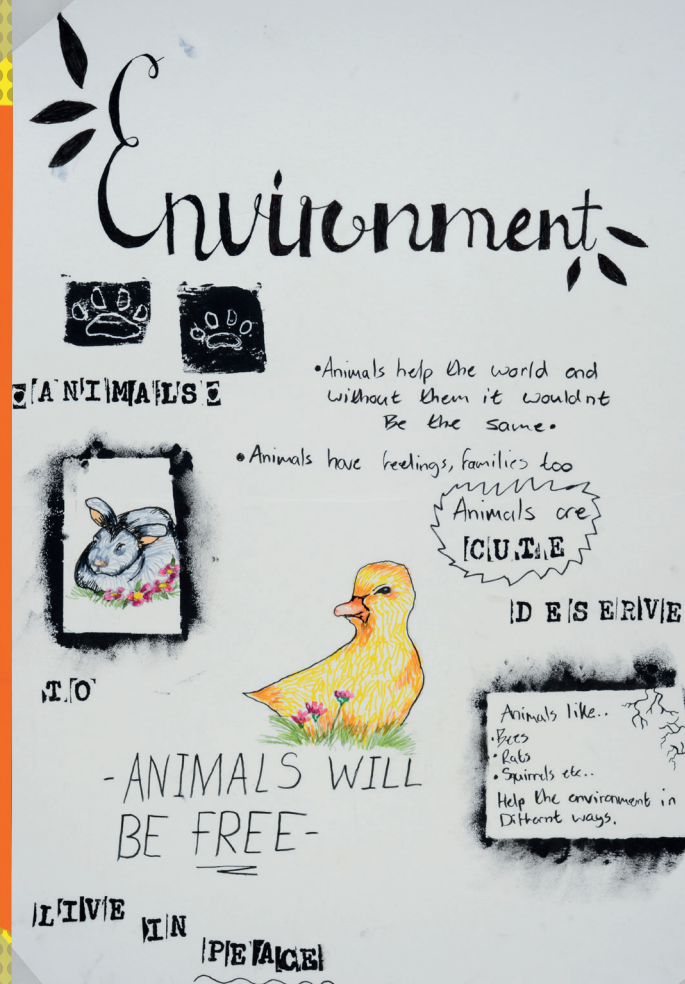 Environment
ANIMALS
•Animals help the world and
without them it wouldnt
Be the same.
•Animals have feelings, families too
Animals are
CUTE
DESERVE
TO
Animals like..
•Bees
•Rats
•Squirrels etc..
Help the environment in
Differnt ways.
-ANIMALS WILL
BE FREE-
LIVE IN
PEACE